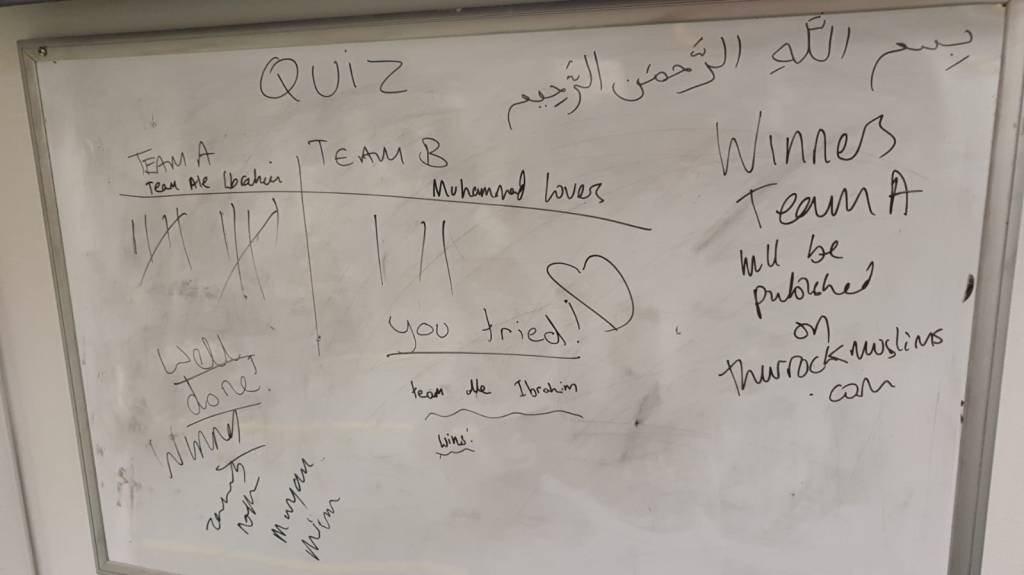 QUIZ
بِسم اللَّهِ الرَّحمَن الرَّحِيم
TEAM A
Team Ale Ibrahim
TEAM B
Muhammad lovers
you tried!
team Ale Ibrahim
wins!
Well
done.
Winner
Maryam
Mim
Winners
Team A
will be
published
on
thurrockmuslims
.com